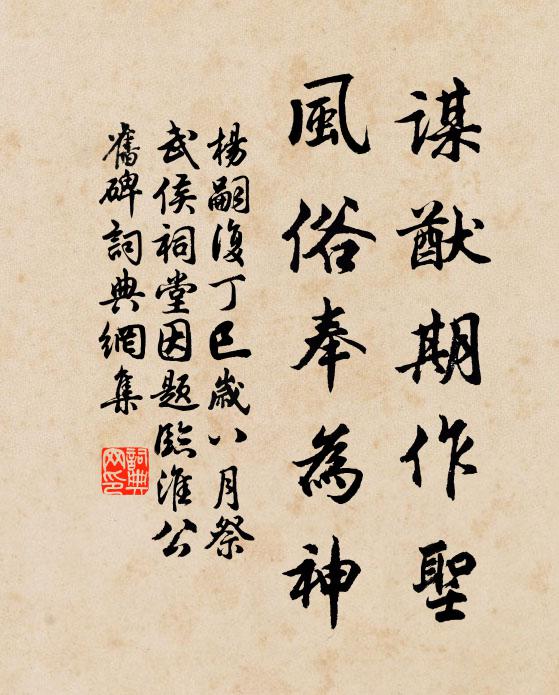 謀猷期作聖
風俗奉為神
楊嗣復丁巳歲八月祭
武侯祠堂因題臨淮公
舊碑詞典網集
詞典網印